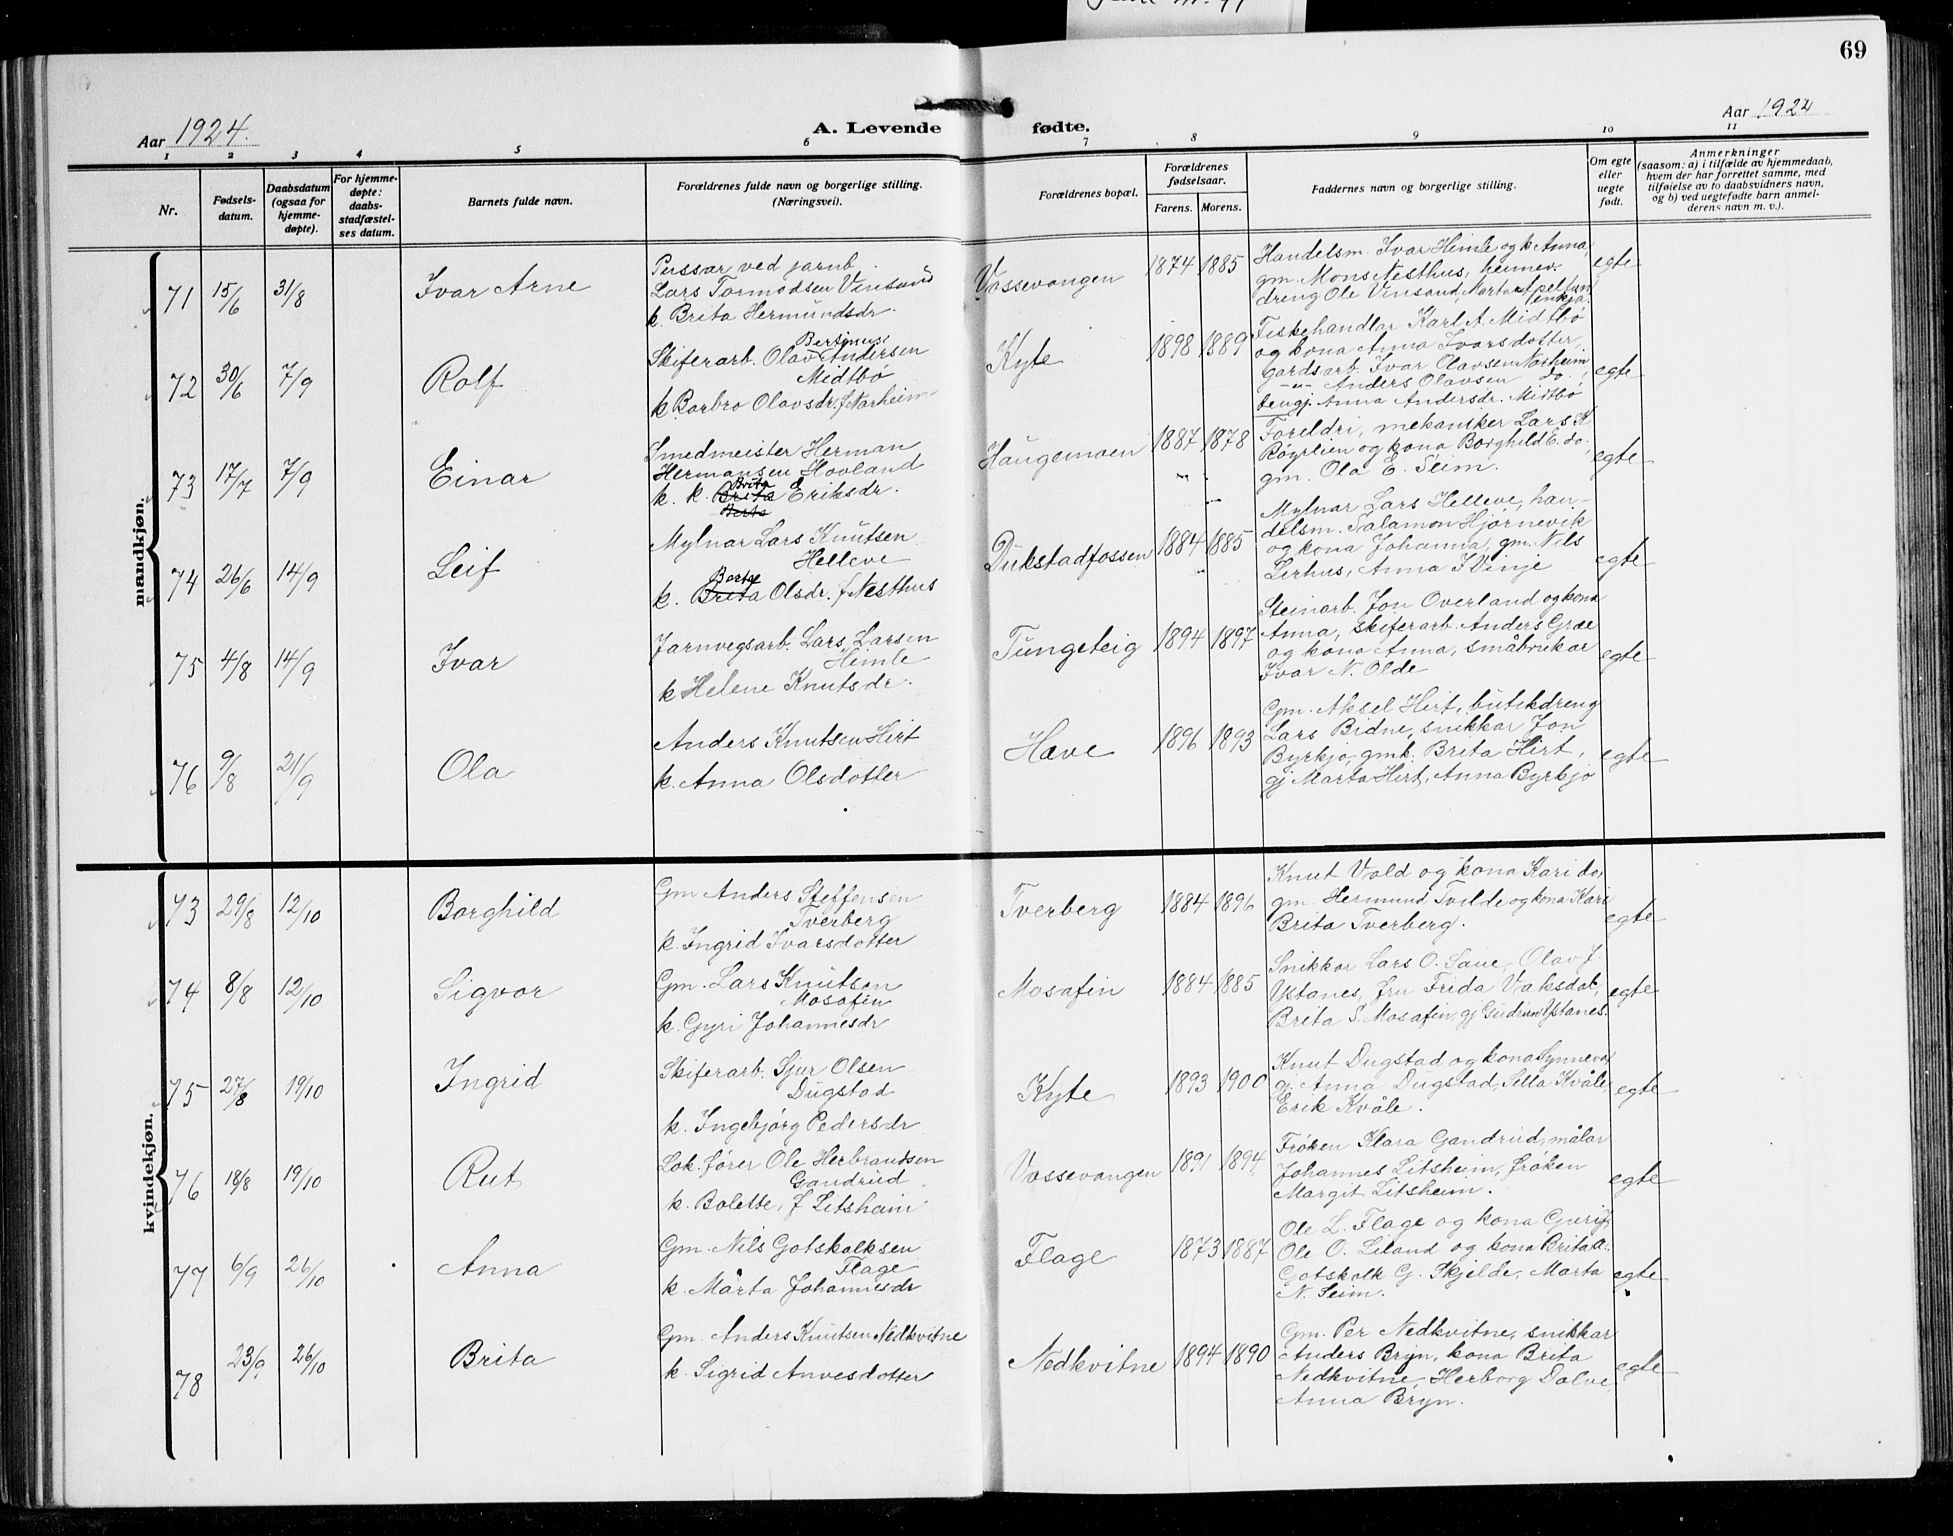 69
Aar 1924.
A. Levende fødte.
Aar 1924
1 2 3 4 5 6 7 8 9 10 11
Nr.
Fødsels-
datum.
Daabsdatum
(ogsaa for
hjemme-
døpte).
For hjemme-
døpte:
daabs-
stadfæstel-
ses datum.
Barnets fulde navn.
Forældrenes fulde navn og borgerlige stilling.
(Næringsvei).
Forældrenes bopæl.
Forældrenes
fødselsaar.
Farens. Morens.
Faddernes navn og borgerlige stilling.
Om egte
eller
uegte
født.
Anmerkninger
(saasom: a) i tilfælde av hjemmedaab,
hvem der har forrettet samme, med
tilføielse av to daabsvidners navn,
og b) ved uegtefødte barn anmel-
derens navn m. v.).
mandkjøn.
71 15/6 31/8 Ivar Arne
Pussar ved jarnb.
Lars Tormodsen Vinsand
k. Brita Hermundsdr.
Vossevangen 1874 1885
Handelsm. Ivar Himle og k. Anna,
gm. Mons Nesthus, heimev.
dreng Ole Vinsand, Marta
enkja.
egte
72 30/6 7/9 Rolf
Bertinus
Skiferarb. Olav Andersen
Midtbö
k. Barbro Olavsdr. f. Narheim
Kyte 1898 1889
Fiskehandlar Karl A. Midtbö
og kona Anna Ivarsdotter,
Gardsarb. Ivar Olavsen Narheim
-„- Anders Olavsen do.,
tengj. Anna Andersdr. Midtbö
egte
73 17/7 7/9 Einar
Smedmeister Herman
Hermansen Hovland
k. k. Brita Eriksdr.
Berta
Haugamoen 1887 1878
Foreldri, mekaniker Lars K.
Röyrlien og kona Borghild E. do,
gm. Ola E. Seim.
egte
74 26/6 14/9 Leif
Mylnar Lars Knutsen
Helleve
k. Brita Olsdr. f. Nesthus
Dukstadfossen 1884 1885
Mylnar Lars Helleve, han-
delsm. Salamon Hjørnevik
og kona Johanna, gm. Nils
Lirhus, Anna I Vinje
egte
75 4/8 14/9 Ivar
Jarnvegsarb. Lars Larsen
Himle
k Helene Knutsdr.
Tungeteig 1894 1897
Steinarb. Jon Overland og kona
Anna, skiferarb. Anders Græe
og kona Anna, småbrukar
Ivar N. Olde
egte
76 9/8 21/9 Ola
Anders Knutsen Hirt
k. Anna Olsdotter
Hæve 1896 1893
Gm. Aksel Hirt, butikdreng
Lars Bidne, snikkar Jon
Byrkjo, gmk. Brita Hirt,
gj Marta Hirt, Anna Byrkjo
egte
kvindekjøn.
73 29/8 12/10 Borghild
Gm Anders Steffensen
Tverberg
k. Ingrid Ivarsdotter
Tverberg 1884 1896
Knut Vold og kona Kari do,
gm. Hermund Tvilde og kona Kari
Brita Tverberg.
egte
74 8/8 12/10 Sigvor
Gm. Lars Knutsen
Mosafin
k. Gyri Johannesdr
Mosafin 1884 1885
Snikkar Lars O. Saue, Olav J
Ystanes, fru Frida Vaksdal,
Brita S. Mosafin, gj Gudrun Ystanes.
egte
75 27/8 19/10 Ingrid
Skiferarb. Sjur Olsen
Dugstad
k. Ingebjørg Pedersdr
Kyte 1893 1900
Knut Dugstad og kona Synneva
gj. Anna Dugstad, Sella Kvåle,
Erik Kvåle.
egte
76 18/8 19/10 Rut
Lok. fører Ole Herbrandsen
Gandrud
k. Bolette, f Litsheim
Vossevangen 1891 1894
Frøken Klara Gandrud, målar
Johannes Litsheim, frøken
Margit Litsheim.
egte
77 6/9 26/10 Anna
Gm. Nils Gotskalksen
Flage
k. Marta Johannesdr
Flage 1873 1887
Ole L. Flage og kona Guri J,
Ole O. Liland og kona Brita A.
Gotskalk G. Skjelde, Marta
N. Seim.
egte
78 23/9 26/10 Brita
Gm. Anders Knutsen Nedkvitne
k. Sigrid Anvesdotter
Nedkvitne 1894 1890
Gm. Per Nedkvitne, snikkar
Anders Bryn, kona Brita
Nedkvitne, Herborg Dolve,
Anna Bryn.
egte